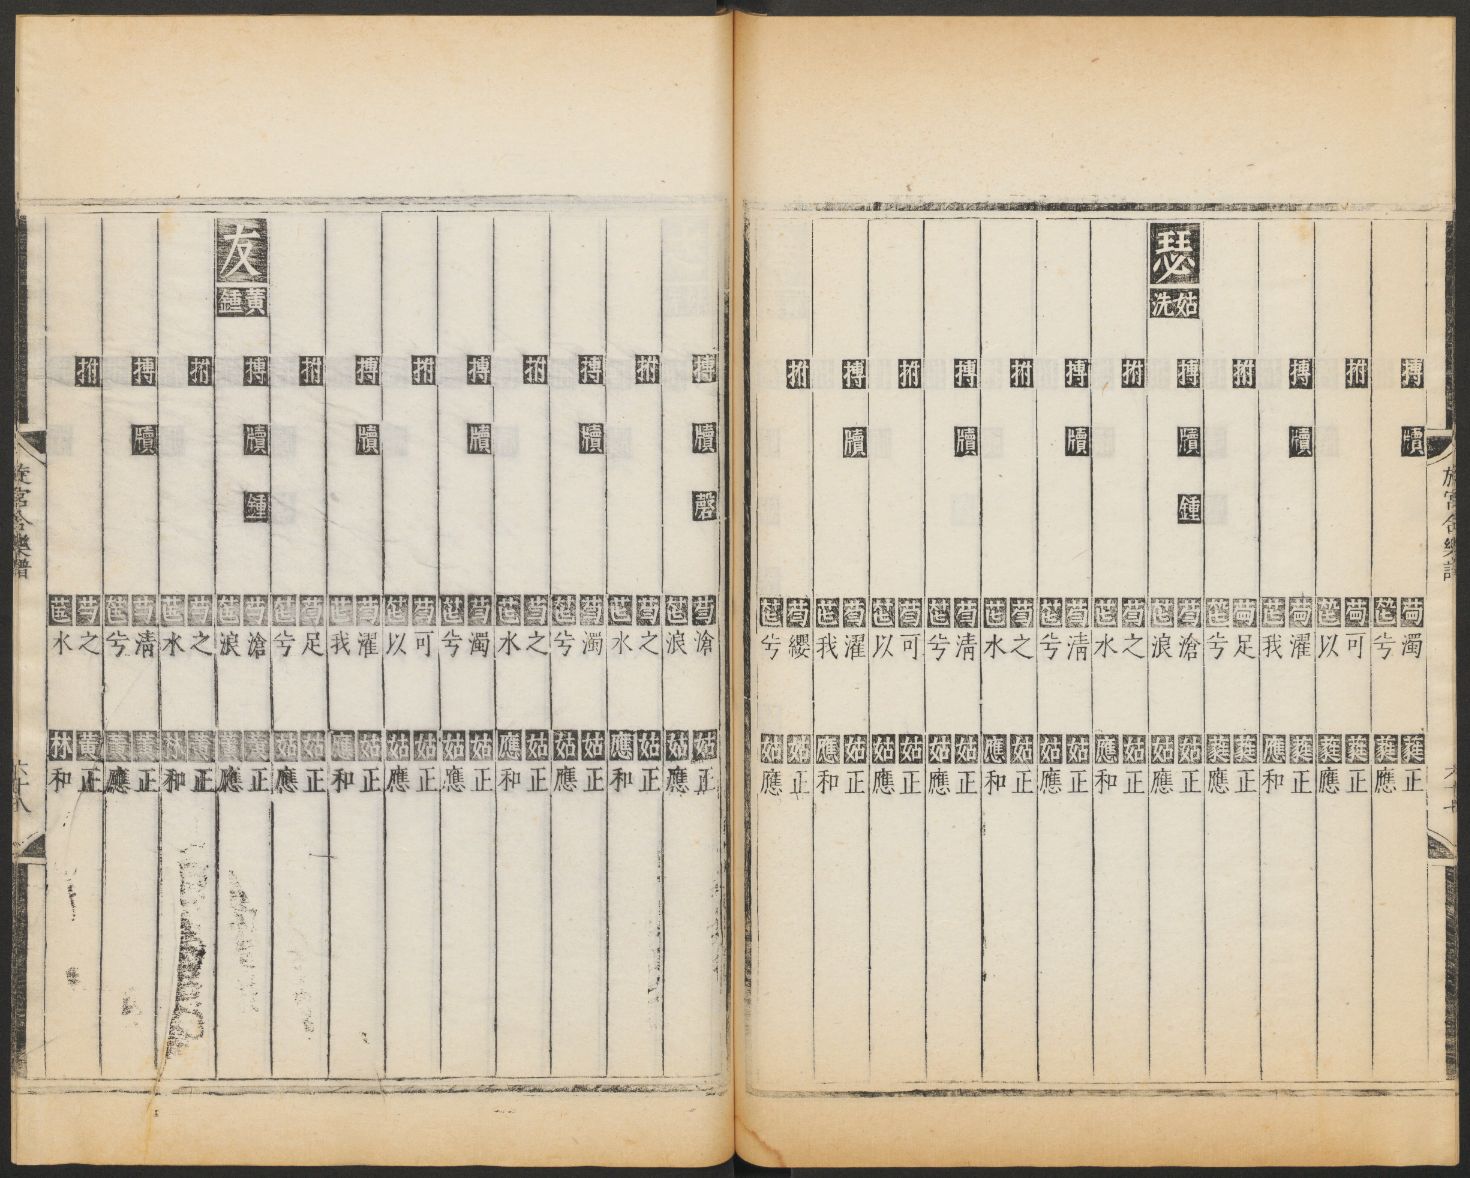 旋宮合樂譜 六十七
搏牘濁蕤正
兮蕤應
拊可蕤正
以蕤應
搏牘濯蕤正
我應和
拊足蕤正
兮蕤應
瑟姑洗搏牘鍾滄姑正
浪姑應
拊之姑正
水應和
搏牘清姑正
兮姑應
拊之姑正
水應和
搏牘清姑正
兮姑應
拊可姑正
以姑應
搏牘濯姑正
我應和
拊纓姑正
兮姑應
搏牘磬滄姑正
浪姑應
拊之姑正
水應和
搏牘濁姑正
兮姑應
拊之姑正
水應和
搏牘濁姑正
兮姑應
拊可姑正
以姑應
搏牘濯姑正
我應和
拊足姑正
兮姑應
友黃鍾搏牘鍾滄黃正
浪黃應
拊之黃正
水林和
搏牘清黃正
兮黃應
拊之黃正
水林和
旋宮合樂譜 六十八